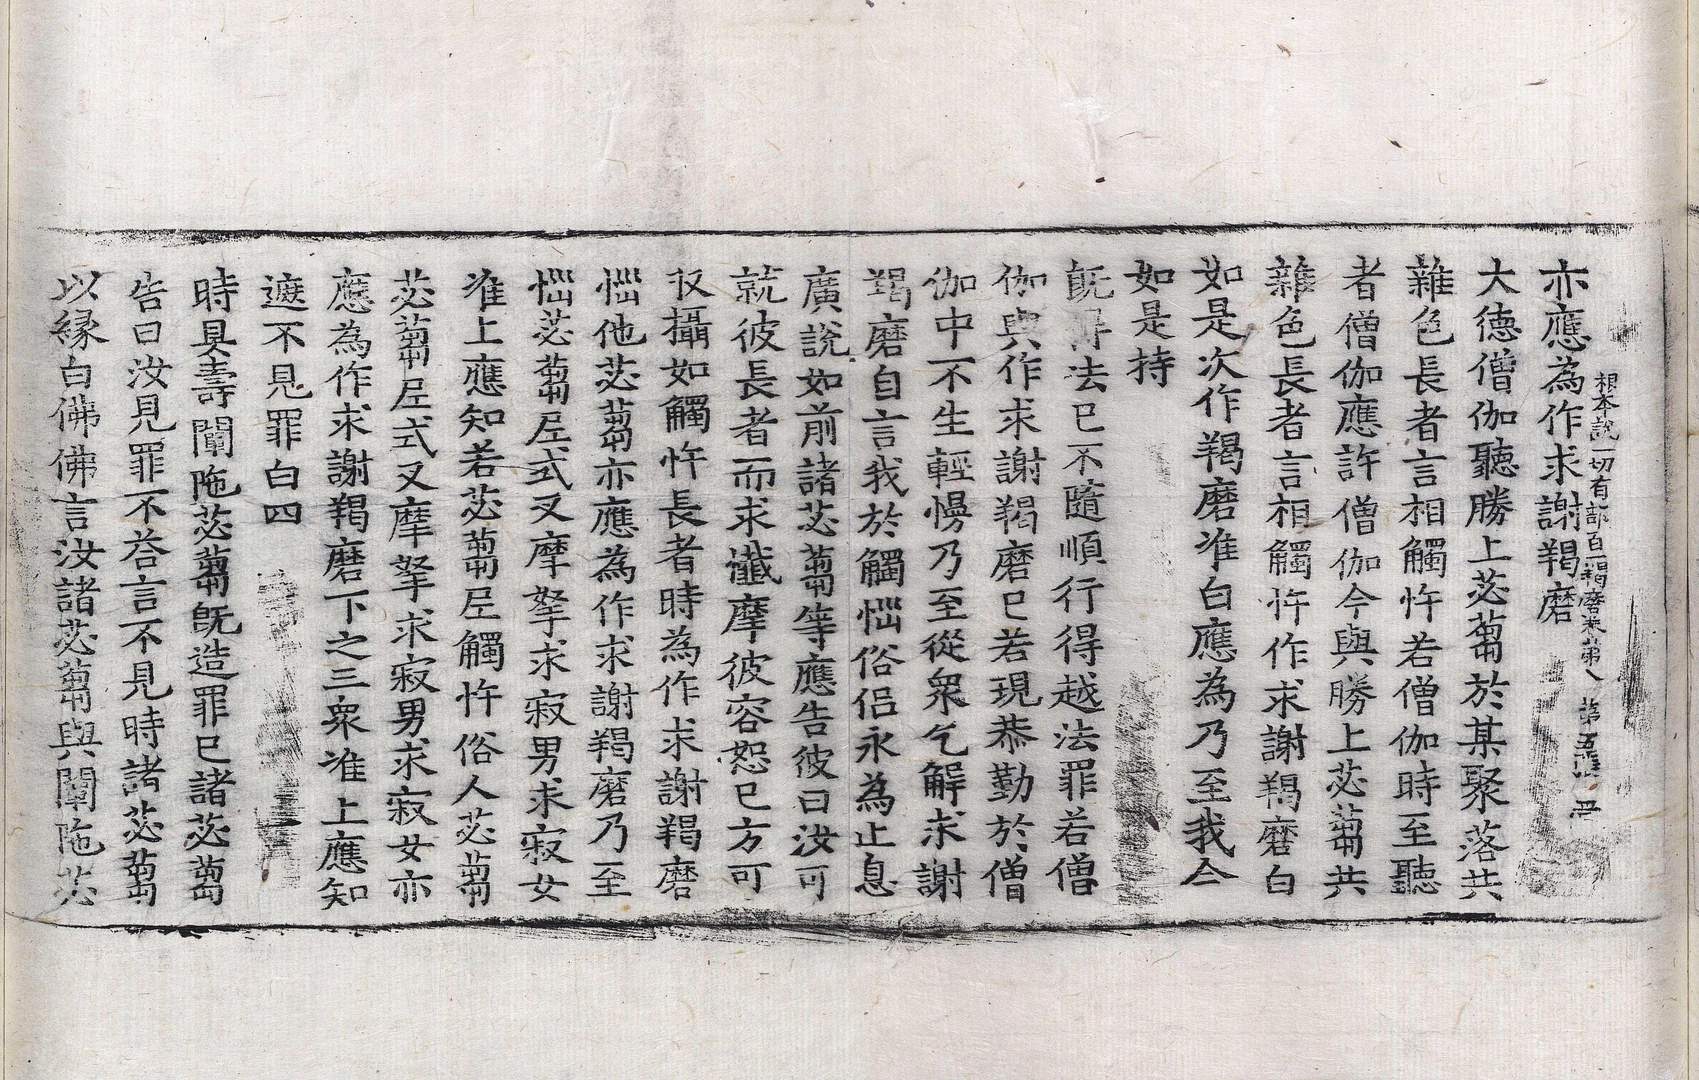 根本說一切有部百一羯磨卷第八　第五張　冊
亦應為作求謝羯磨
大德僧伽聽勝上苾蒭於某聚落共
雜色長者言相觸忤若僧伽時至聽
者僧伽應許僧伽今與勝上苾蒭共
雜色長者言相觸忤作求謝羯磨白
如是次作羯磨准白應為乃至我今
如是持
既得法已不隨順行得越法罪若僧
伽與作求謝羯磨已若現恭勤於僧
伽中不生輕慢乃至從衆乞解求謝
羯磨自言我於觸惱俗侶永為止息
廣說如前諸苾蒭等應告彼曰汝可
就彼長者而求懺摩彼容恕已方可
収攝如觸忤長者時為作求謝羯磨
惱他苾蒭亦應為作求謝羯磨乃至
惱苾蒭尼式叉摩拏求寂男求寂女
准上應知若苾蒭尼觸忤俗人苾蒭
苾蒭尼式叉摩拏求寂男求寂女亦
應為作求謝羯磨下之三衆准上應知
遮不見罪白四
時具壽闡陁苾蒭既造罪已諸苾蒭
告曰汝見罪不荅言不見時諸苾蒭
以緣白佛佛言汝諸苾蒭與闡陁苾